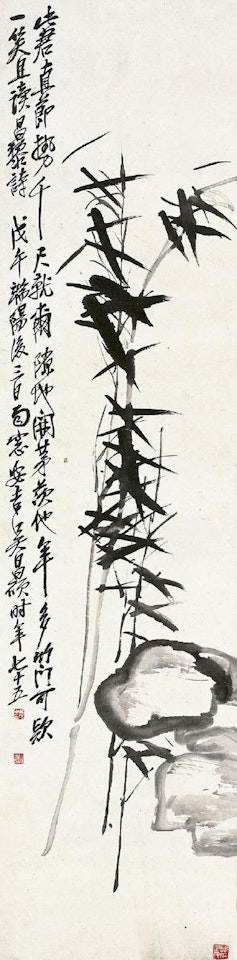 此君直節勢千尺就爾隙地開茅茨他年多竹門可款
一笑且讀昌黎詩 戊午端陽後三日雨窗安吉吳昌碩時年七十五